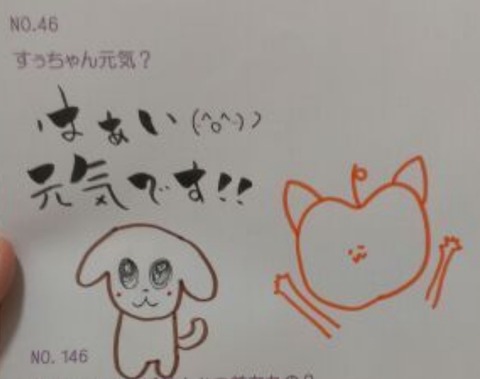 NO.46
すぅちゃん元気？
はぁい(^o^)丿
元気です!!
NO. 146